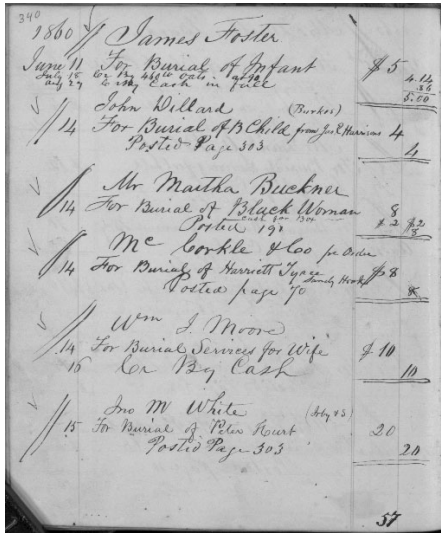 340
1860 // James Foster
June 11 For Burial of Infant $5
July 18 Cr By 460 lb Oats at 90 4.14
Aug 29 Cr By Cash in full .86
5.00
John Dillard (Burkes)
// 14 For Burial of B Child from Jos E Harrisons 4
Posted Page 303 4
Mr Martha Buckner
// 14 For Burial of Black Woman 8
Cash for Box $2 $2
Posted 191 8
Mc Corkle & Co per Order
// 14 For Burial of Harriett $8
Sandy Hook
Posted page 70 8
Wm J. Moore
// 14 For Burial Services for Wife $10
16 Cr By Cash 10
Jno M White
// 15 For Burial of Peter Hurt 20
Posted Page 303 20
57